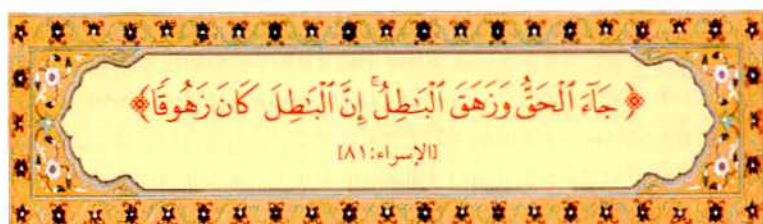 ﴿ جَآءَ ٱلْحَقُّ وَزَهَقَ ٱلْبَـٰطِلُ ۚ إِنَّ ٱلْبَـٰطِلَ كَانَ زَهُوقًا ﴾
[الإسراء:٨١]